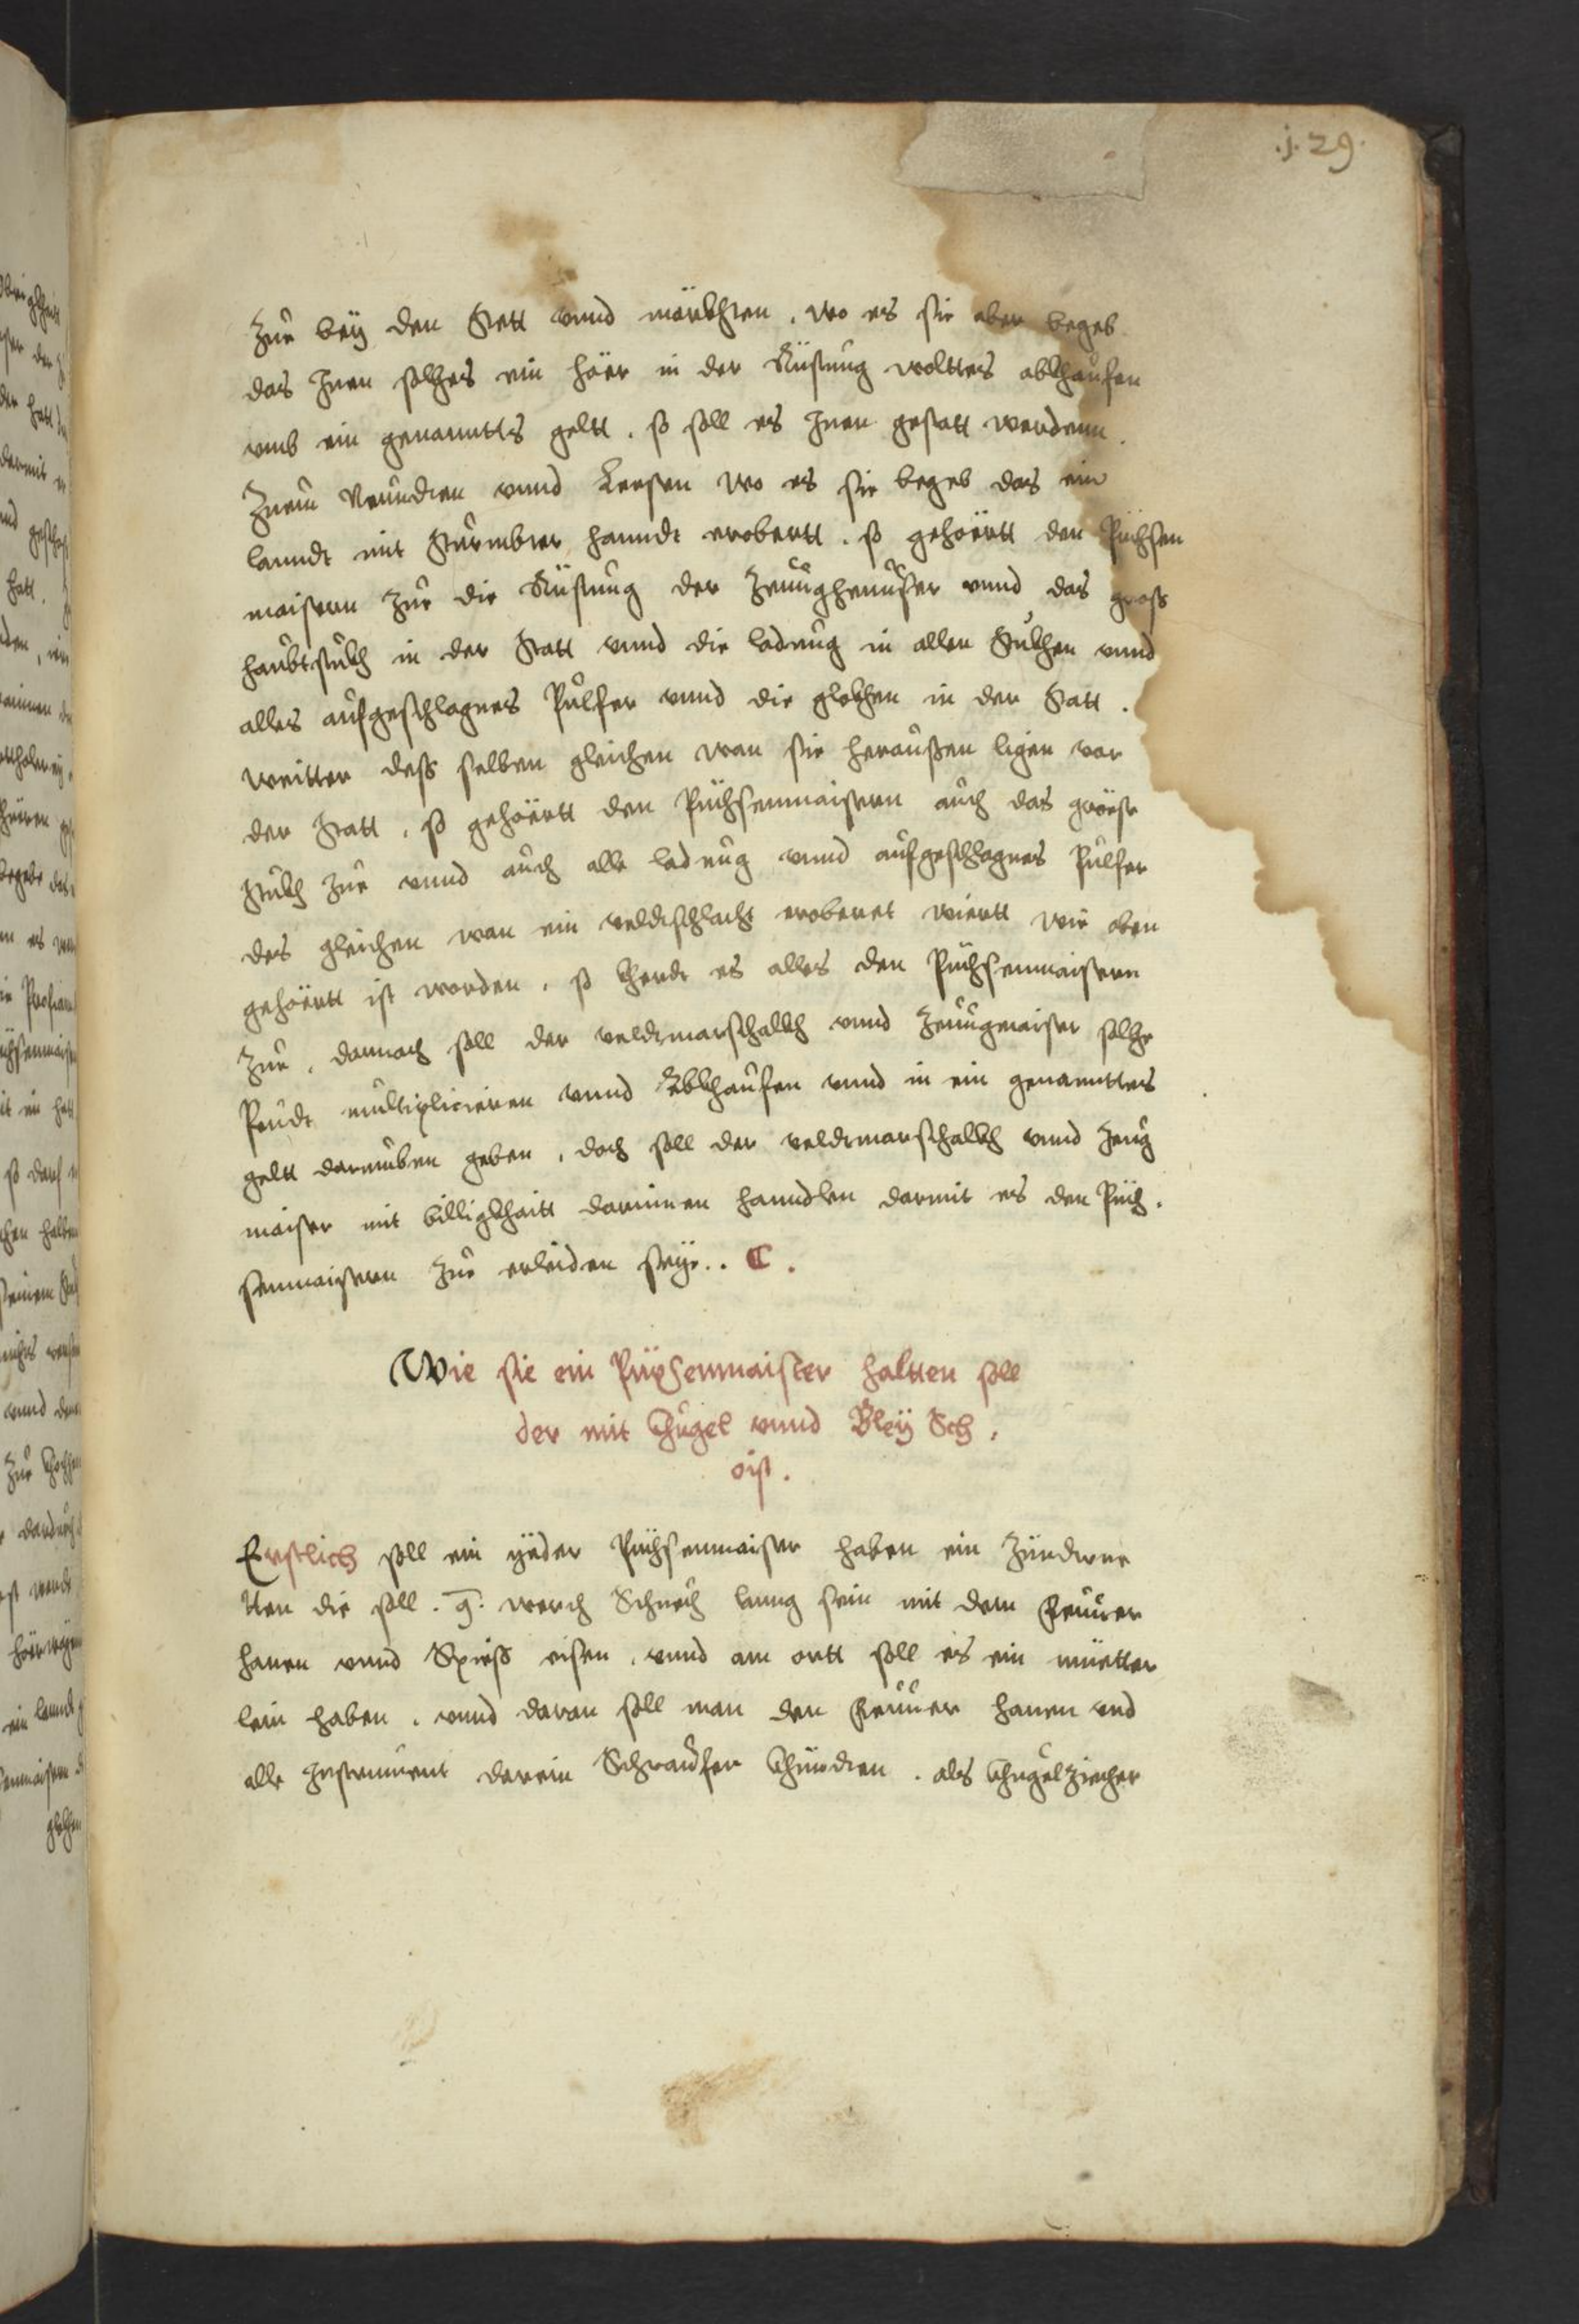 .j.29.
zue beÿ den Stett vnnd märkhten. wo es sie aber begeb
das Inen solhes ein häer in der Rüstung wolttes abkhaufen
vmb ein genanntts geltt. so soll es Inen gestatt werdenn.
Zuem Neundten vnnd Lersten wo es sie begeb das ein
lanndt mit Stürmbter hanndt erobertt. so gehöertt den Püchsen
maistern zue die Rüstung der Zeugheuser vnnd das gross
haubtstukh in der Statt vnnd die ladung in allen Stukhen vnnd
alles aufgeschlagnes Pulfer vnnd die glokhen in der Statt.
weitter dess selben gleichen wan sie heraussen ligen vor
der Statt. so gehöertt den Püchsenmaistern auch das gröeste
Stukh zue vnnd auch alle ladnug vnnd aufgeschlagnes Pulfer
des gleichen wan ein veldtschlacht eroberet wiertt wie oben
gehöertt ist worden. so kherdt es alles den Püchsenmaistern
zue. darnach soll der veldtmarschalkh vnnd Zeugmaister solhe
Peudt multiplicieren vnnd Abkhaufen vnnd in ein genannttes
geltt darumben geben. doch soll der veldtmarschalkh vnnd Zeug
maister mit billigkhaitt darinnen hanndlen darmit es den Püch.
senmaistern zue erleiden seÿe.. C.
Wie sie ein Püxsenmaister haltten soll
der mit Khugel vnnd Bleÿ Sch.
oist.
Erstlich soll ein ÿeder Püchsenmaister haben ein Zündtrue
tten die soll. 9. werch Schuech lanng sein mit dem Feurer
hanen vnnd Spiess eisen. vnnd am ortt soll es ein müetter
lein haben. vnnd daran soll man den Feuuer hanen vnd
alle Instrument darein Schraufen khündten. als Khugelziecher